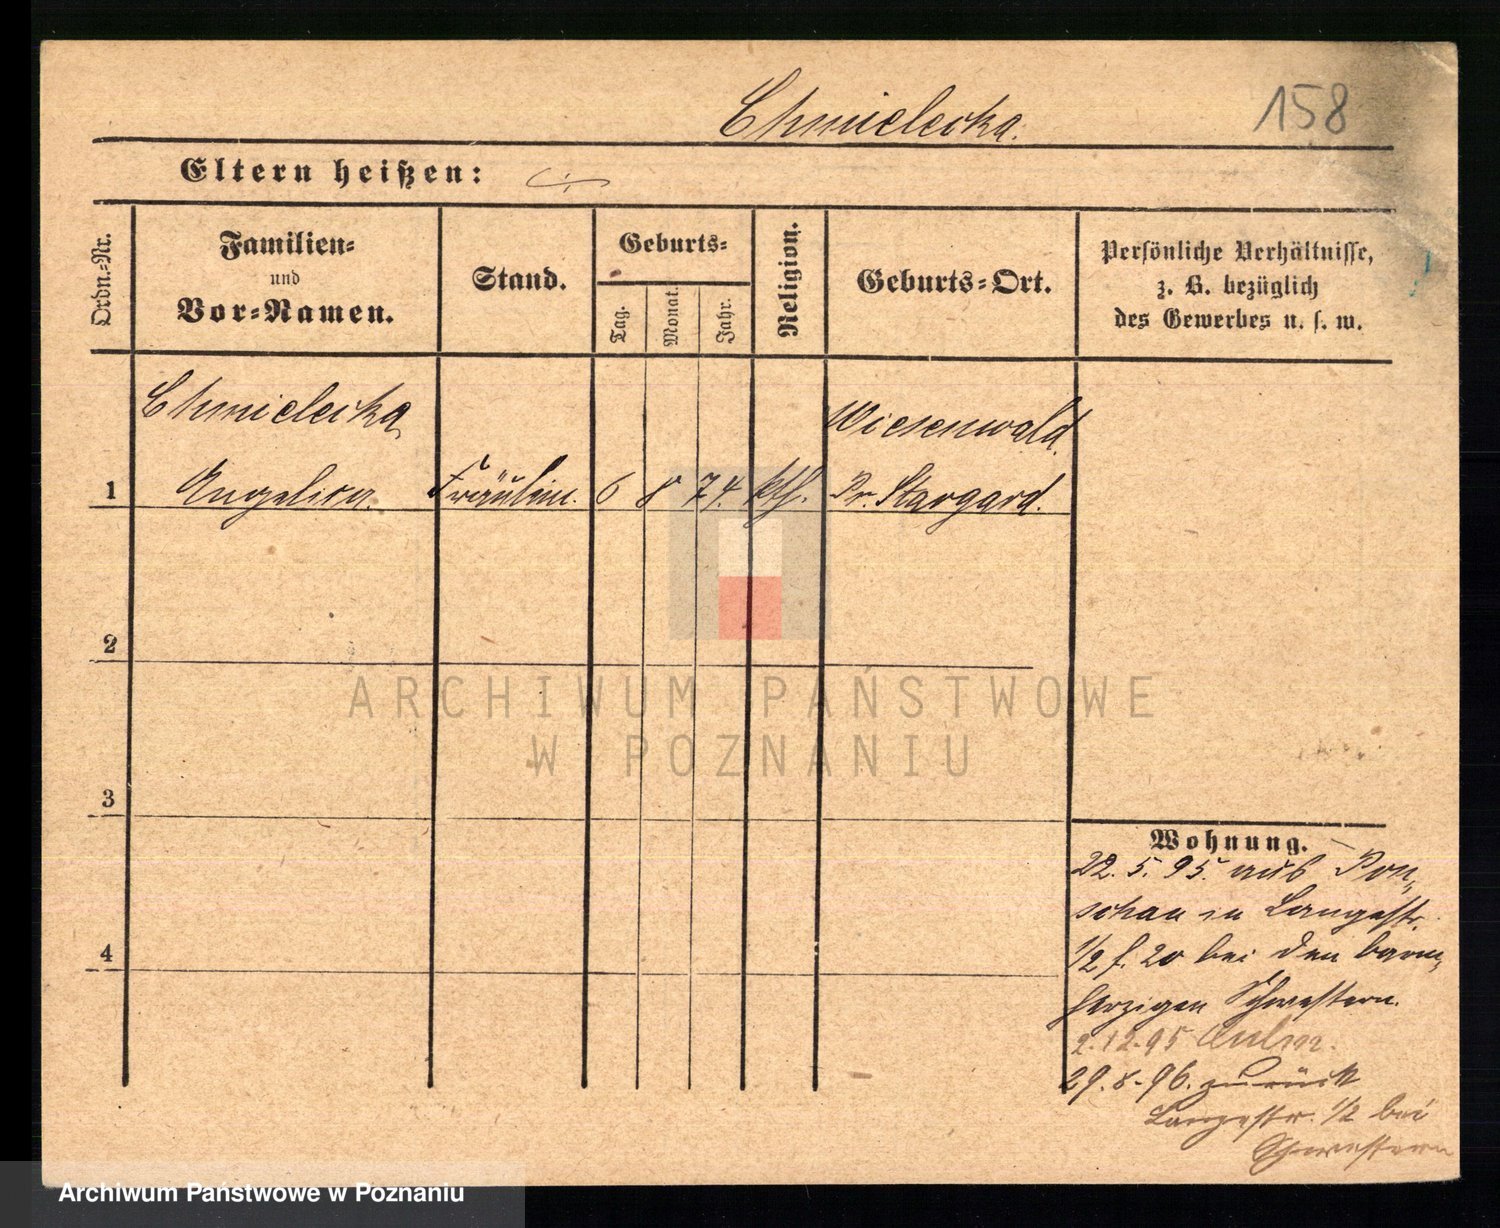 Chmielecka.
158
Eltern heißen:
Ordn.-Nr.
Familien-
und
Vor-Namen.
Stand.
Geburts-
Tag.
Monat.
Jahr.
Religion.
Geburts-Ort.
Persönliche Verhältnisse,
z. B. bezüglich
des Gewerbes u. s. w.
Chmielecka
Wiesenwald.
1
Angelica.
Fräulein.
6
8
74.
kth.
Pr. Stargard.
2
ARCHIWUM PAŃSTWOWE
W POZNANIU
3
Wohnung.
22. 5. 95. aus Pon-
schau in Langestr.
1/2 f. 20 bei den barm-
4
herzigen Schwestern.
2.12.95 Culm.
29.8.96. zurück
Langestr. 1/2 bei
Schwestern
Archiwum Państwowe w Poznaniu